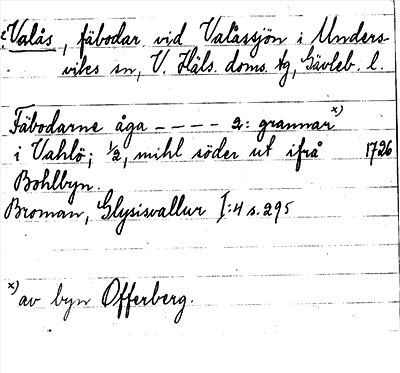 Valås, fäbodar vid Valåssjön i Unders-
vikes sn, V. Häls. doms. tg, Gävleb. l.
Fäbodarne åga - - - - 2: grannar x)
i Vahlö; ½, mihl söder ut ifrå 1726
Bohlbyn.
Broman, Glysisvallur I:4 s. 295
x) av byn Offerberg.